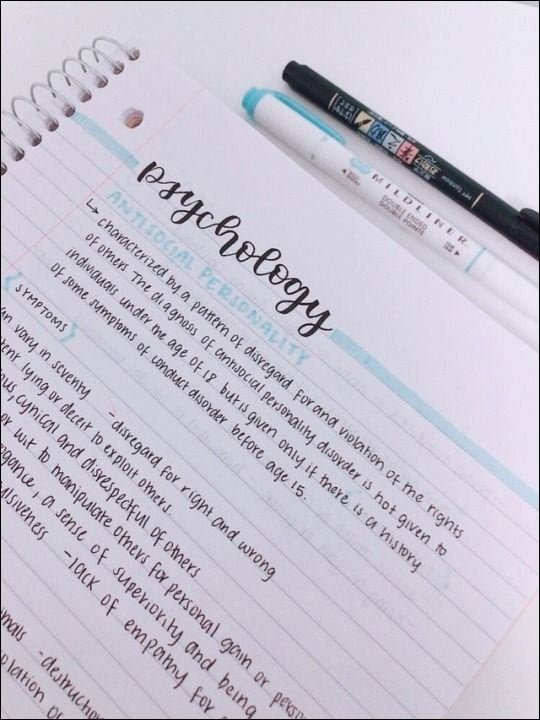 psychology
ANTISOCIAL PERSONALITY
↳ characterized by a pattern of disregard for and violation of the rights
of others The diagnosis of antisocial personality disorder is not given to
individuals under the age of 18 but is given only if there is a history
of some symptoms of conduct disorder before age 15.
SYMPTOMS
vary in severity - disregard for right and wrong
lying or deceit to exploit others.
, cynical and disrespectful of others
or wit to manipulate others for personal gain or
, a sense of superiority and being
- lack of empathy for
- destruction
MILDLINER
DOUBLE ENDED
DOUBLE POINTS